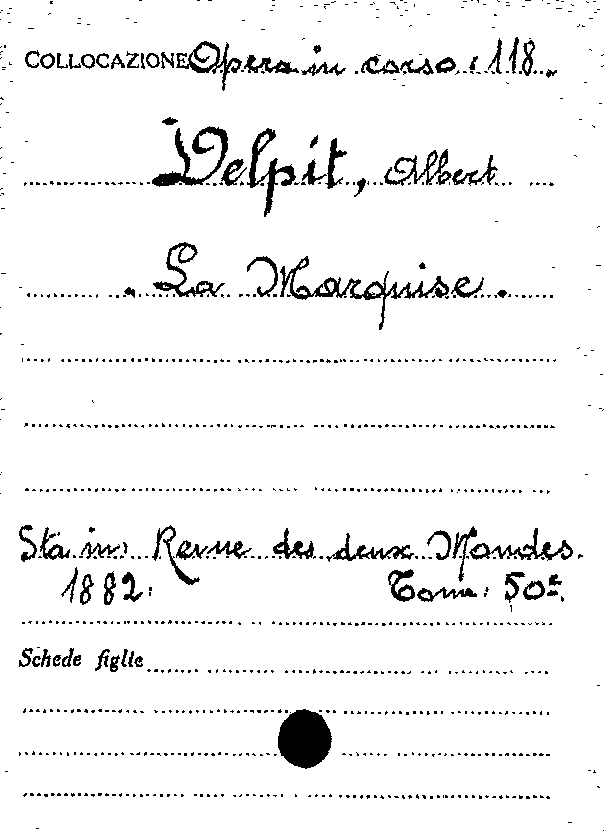 COLLOCAZIONE Opera in corso: 118.
Delpit, Albert
. La Marquise .
Sta in: Revue des deux Mondes.
1882. Tome: 50e.
Schede figlie